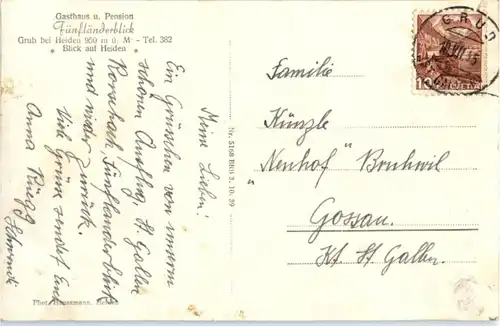 Gasthaus u. Pension
Fünfländerblick
Grub bei Heiden 950 m ü. M - Tel. 382
"Blick auf Heiden"
Meine Lieben!
Ein Grüsschen von unserm
schönen Ausflug, St. Gallen
Rorschach, Fünfländerblick
und wieder zurück.
Viele Grüsse sendet Euch
Anna Rüegg
Nr. 5168 BRB 3. 10. 39
Phot. Hausamann, Heiden
GRUB
HELVETIA
Familie
Künzle
"Neuhof" Bruhwil
Gossau.
Kt. St Gallen